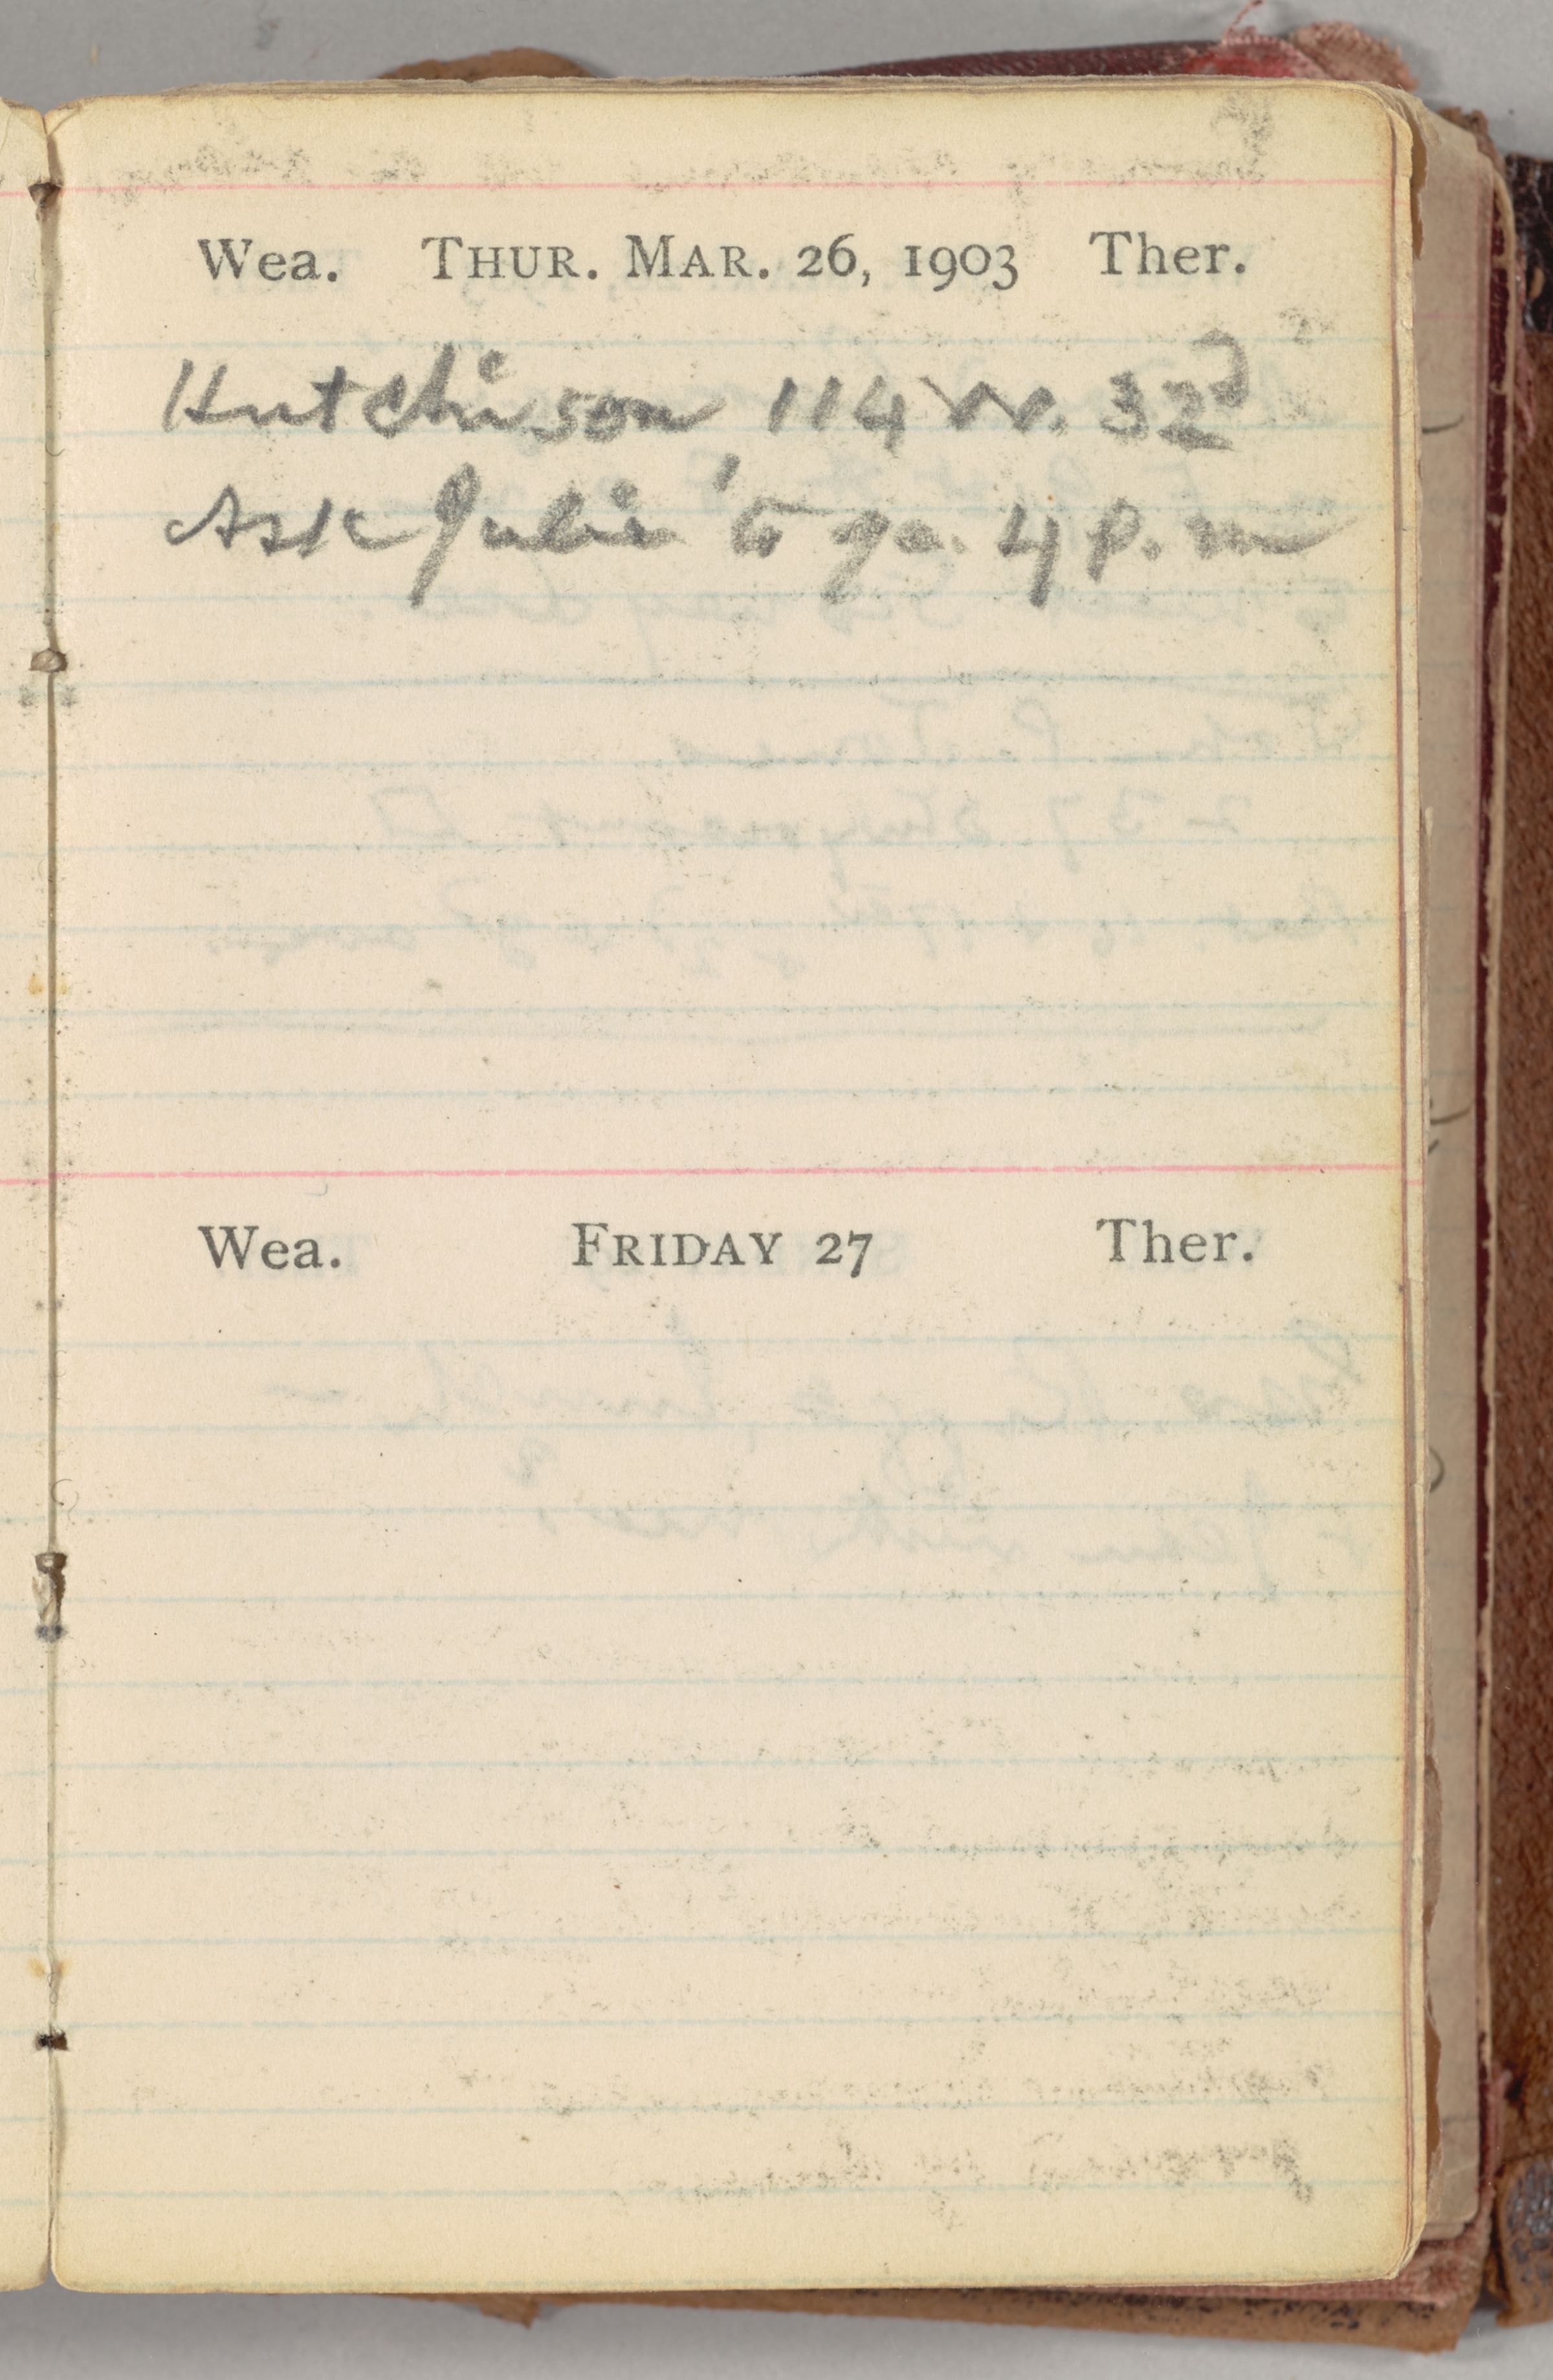 Wea. THUR. MAR. 26, 1903 Ther.
Hutchinson, 114 W. 32d
Ask Julie to go. 4 P. m
Wea. FRIDAY 27 Ther.